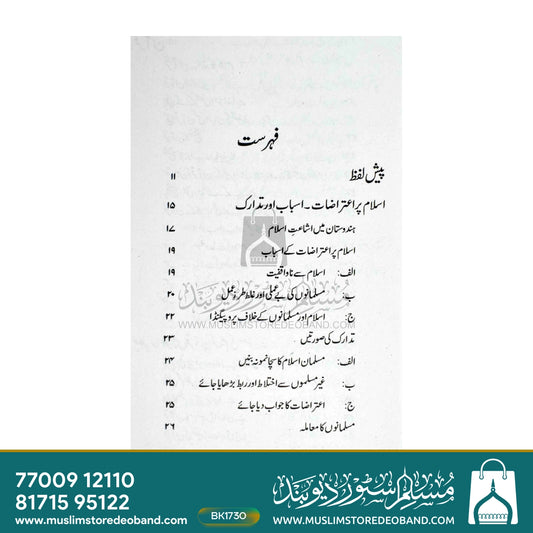 فہرست
پیش لفظ ۱۱
اسلام پر اعتراضات۔ اسباب اور تدارک ۱۵
ہندوستان میں اشاعتِ اسلام ۱۷
اسلام پر اعتراضات کے اسباب ۱۹
الف: اسلام سے ناواقفیت ۱۹
ب: مسلمانوں کی بے عملی اور غلط طرزِ عمل ۲۰
ج: اسلام اور مسلمانوں کے خلاف پروپیگنڈا ۲۲
تدارک کی صورتیں ۲۳
الف: مسلمان اسلام کا سچا نمونہ بنیں ۲۴
ب: غیر مسلموں سے اختلاط اور ربط بڑھایا جائے ۲۵
ج: اعتراضات کا جواب دیا جائے ۲۵
مسلمانوں کا معاملہ ۲۶
مسلم اسٹور دیوبند
WWW.MUSLIMSTOREDEOBAND.COM
77009 12110
81715 95122
www.muslimstoredeoband.com
BK1730
مسلم اسٹور دیوبند
WWW.MUSLIMSTOREDEOBAND.COM